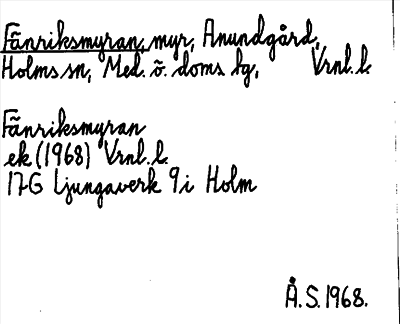 Fänriksmyran, myr, Anundgård,
Holms sn, Med. ö. doms hg, Vrnl. l.
Fänriksmyran
ek (1968) Vrnl. l.
17G Ljungaverk 9i Holm
Å.S. 1968.